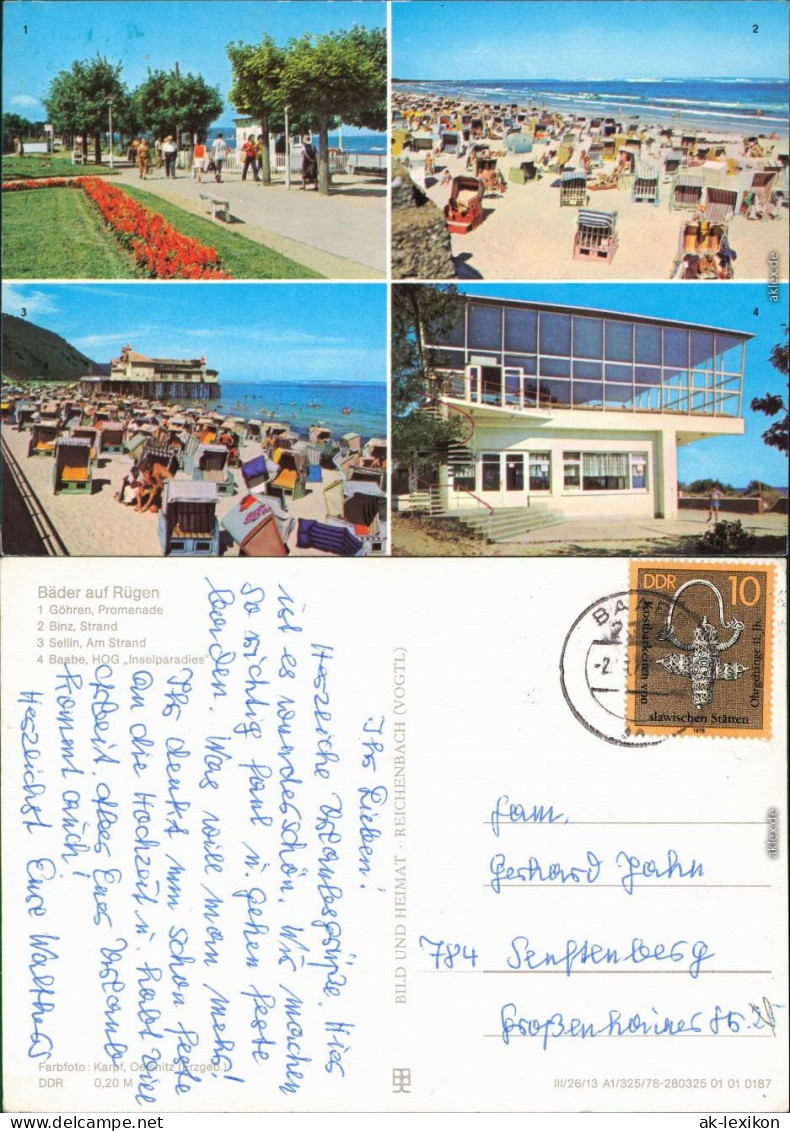 1
2
3
4
aklex.de
Bäder auf Rügen
1 Göhren, Promenade
2 Binz, Strand
3 Sellin, Am Strand
4 Baabe, HOG „Inselparadies"
Ihr Lieben!
Herzliche Urlaubsgrüße. Hier
ist es wunderschön. Wir machen
so richtig faul u. gehen feste
baden. Was will man mehr!
Ihr denkt nun schon feste
an die Hochzeit u. habt viel
Arbeit. Aber Euer Urlaub
kommt auch!
Herzlichst Eure Walthers
Farbfoto: Karpf, Oelsnitz (Erzgeb.)
DDR 0,20 M
BILD UND HEIMAT · REICHENBACH (VOGTL)
BAABE
DDR 10
Kostbarkeiten von
slawischen Stätten
Ohrgehänge 11. Jh.
1978
Fam.
Gerhard Jahn
784 Senftenberg
Großenhainer Str.
aklex.de
III/26/13 A1/325/78-280325 01 01 0187
ak-lexikon.com